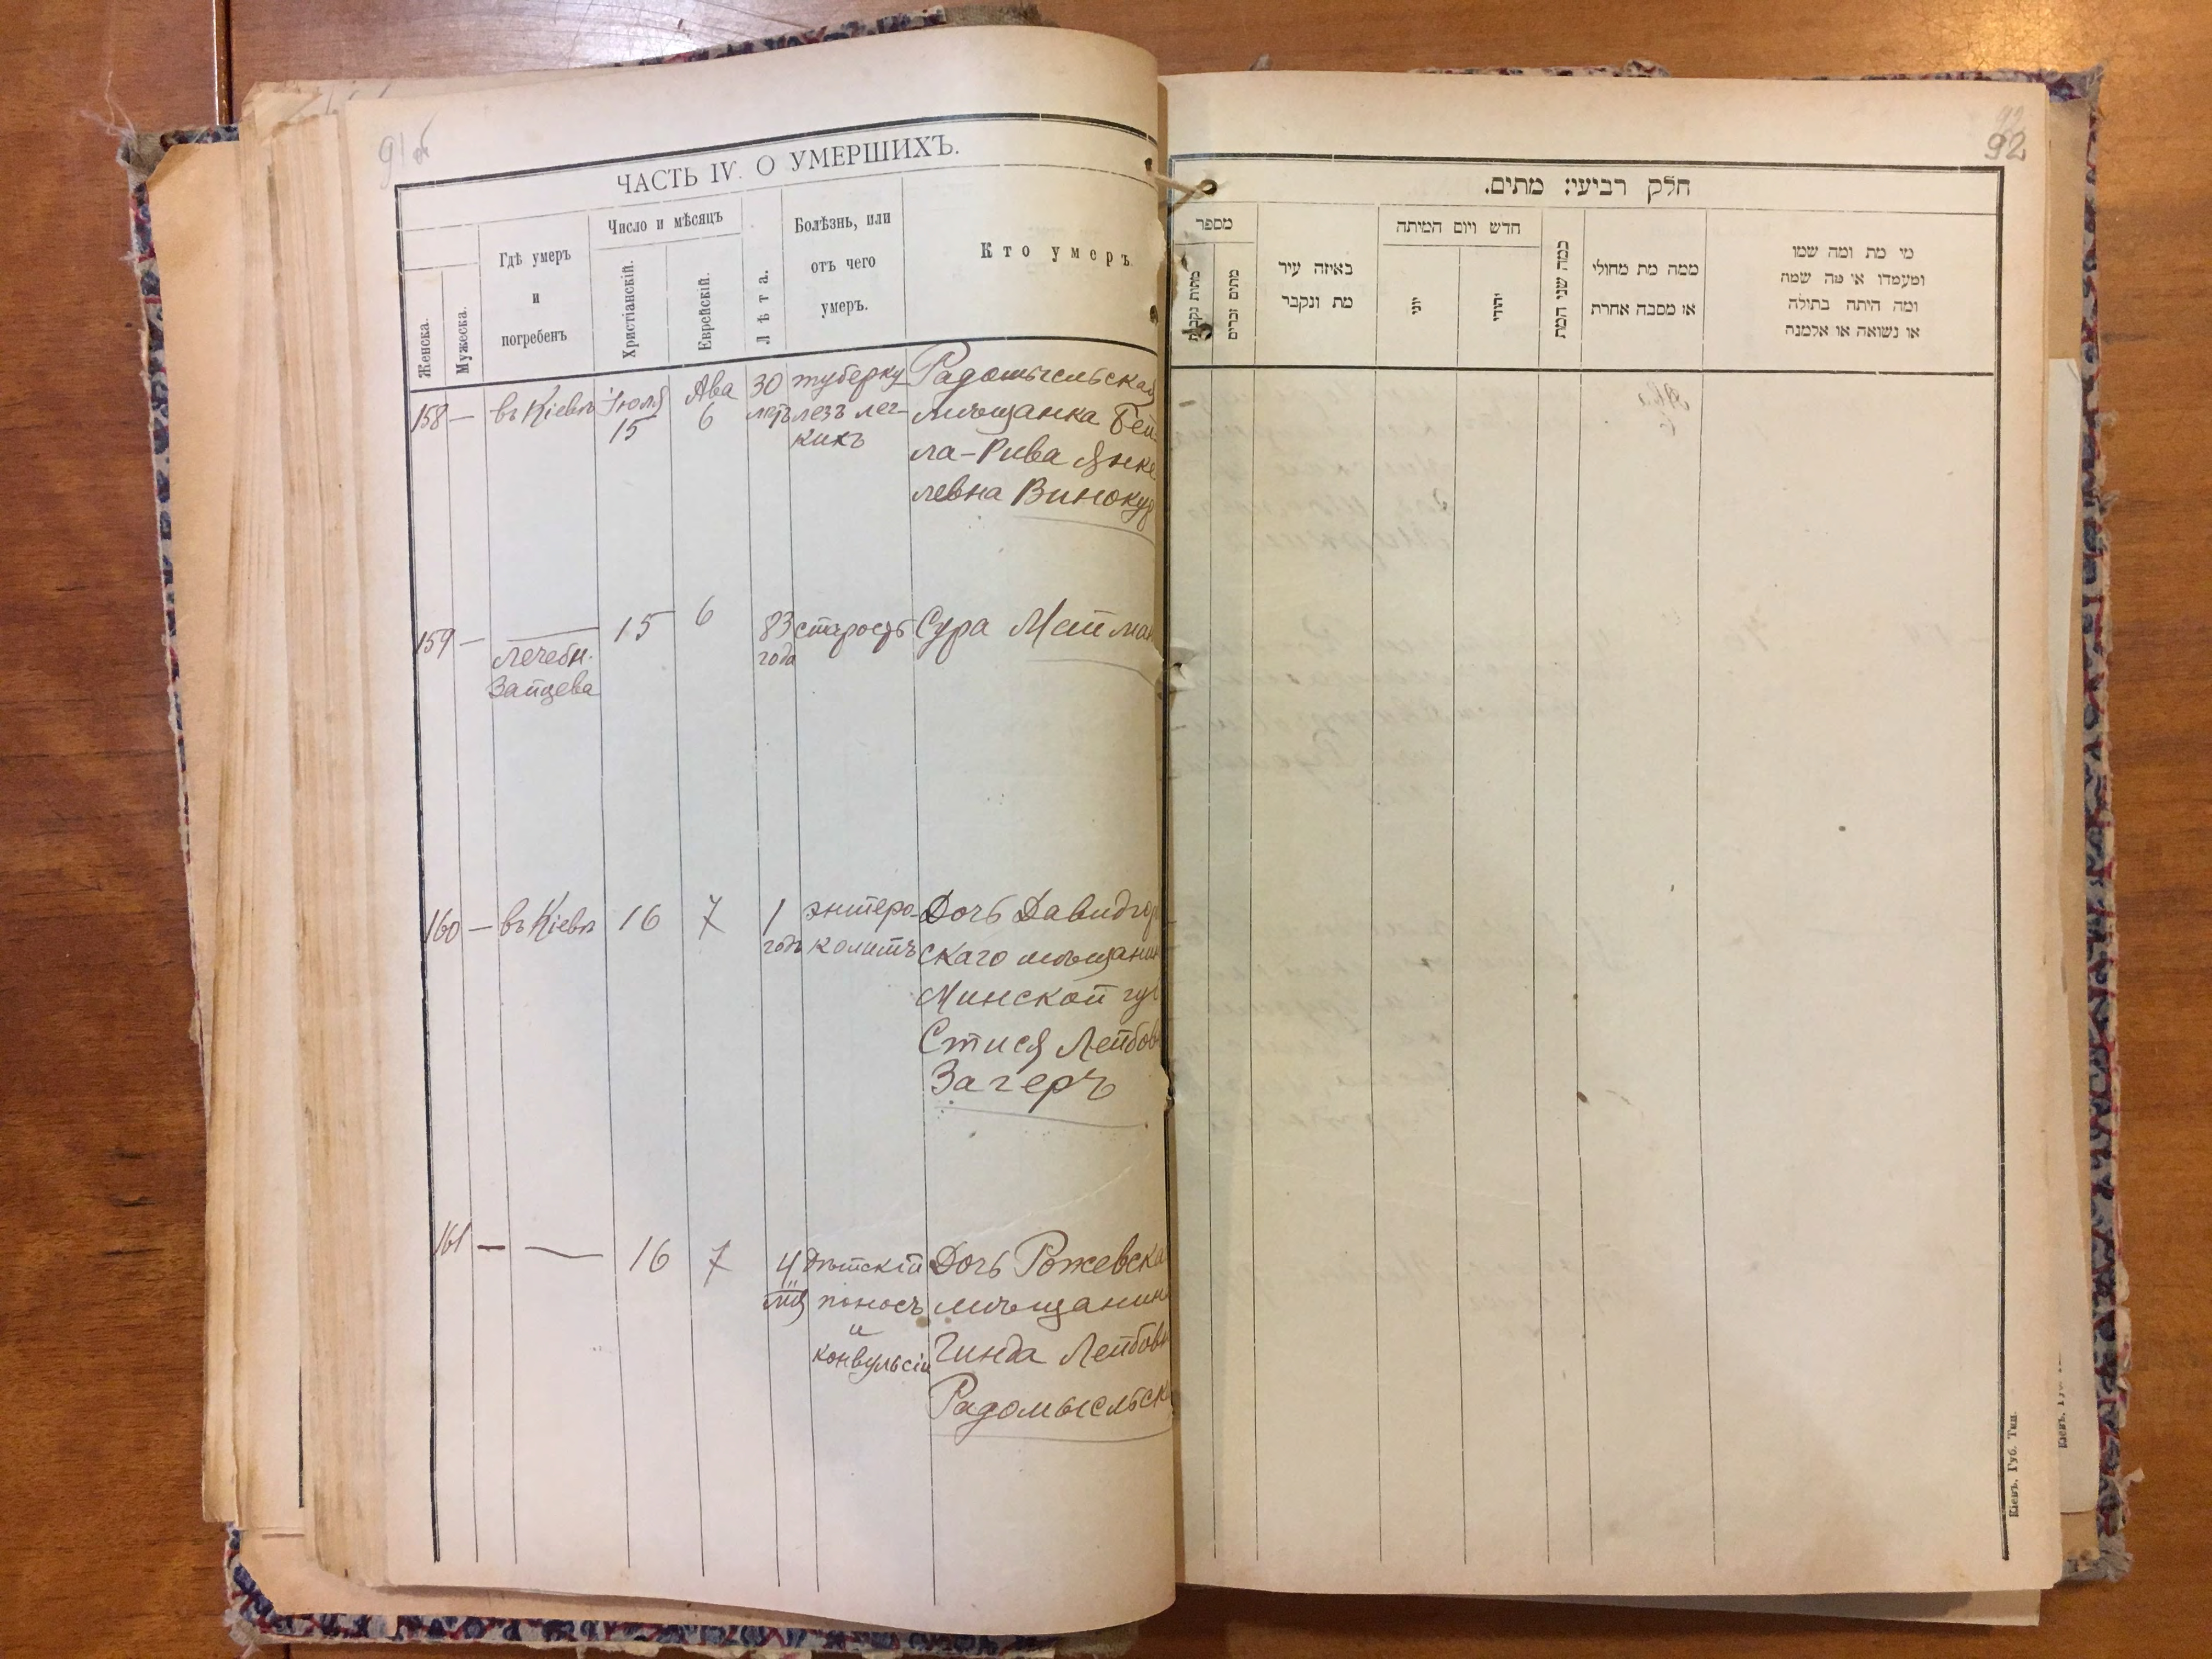 91об
ЧАСТЬ IV. О УМЕРШИХЪ.
Женска.
Мужеска.
Гдѣ умеръ
и
погребенъ
Число и мѣсяцъ
Христіанскій.
Еврейскій.
Лѣта.
Болѣзнь, или
отъ чего
умеръ.
Кто умеръ
158 — въ Кіевѣ Іюля 15 Ава 6 30 лѣтъ
туберку
лезъ лег-
кихъ
Радомысльская
мѣщанка Бей
ла-Рива Янке
левна Винокур
159 — — 15 6 83 года старость Сура Майман
Лечебн.
Зайцева
160 — въ Кіевѣ 16 7 1 годъ
энтеро-
колитъ
Дочь Давидгор
скаго мѣщанин
Минской губ
Стися Лейбов
Загеръ
161 — — 16 7 4 мц
Дѣтскій
поносъ
и
конвульсіи
Дочь Рожевска
мѣщанин
Гинда Лейбовн
Радомысльск
92
חלק רביעי: מתים.
מספר
מתות נקבות
מתים זכרים
באיזה עיר
מת ונקבר
חדש ויום המיתה
יוני
יהודי
כמה שני המת
ממה מת מחולי
או מסבה אחרת
מי מת ומה שמו
ומעמדו או מה שמה
ומה היתה בתולה
או נשואה או אלמנה
Кіевъ. Губ. Тип.